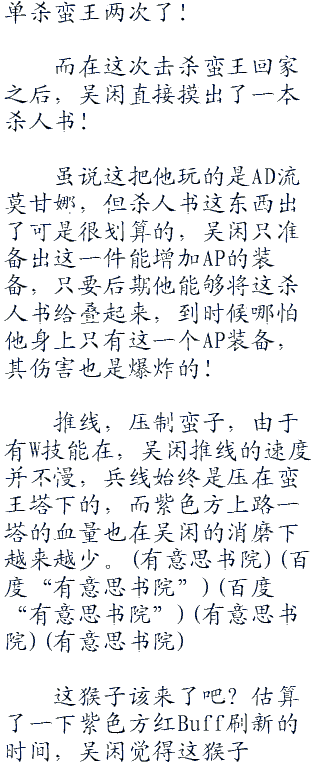 单杀蛮王两次了！
而在这次击杀蛮王回家
之后，吴闲直接摸出了一本
杀人书！
虽说这把他玩的是AD流
莫甘娜，但杀人书这东西出
了可是很划算的，吴闲只准
备出这一件能增加AP的装
备，只要后期他能够将这杀
人书给叠起来，到时候哪怕
他身上只有这一个AP装备，
其伤害也是爆炸的！
推线，压制蛮子，由于
有W技能在，吴闲推线的速度
并不慢，兵线始终是压在蛮
王塔下的，而紫色方上路一
塔的血量也在吴闲的消磨下
越来越少。(有意思书院)(百
度“有意思书院”)(百度
“有意思书院”)(有意思书
院)(有意思书院)
这猴子该来了吧？估算
了一下紫色方红Buff刷新的
时间，吴闲觉得这猴子